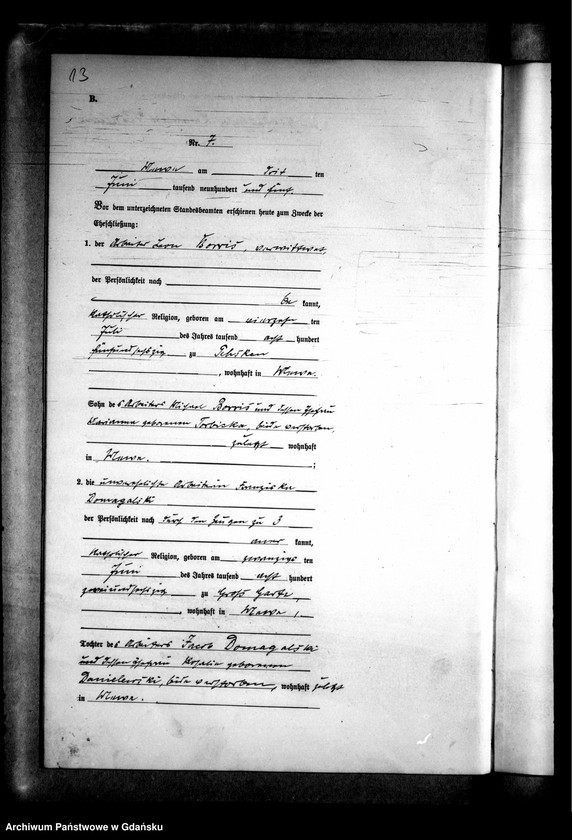 13
B.
Nr. 7.
Mewe am drit ten
Juni tausend neunhundert und fünf
Vor dem unterzeichneten Standesbeamten erschienen heute zum Zwecke der
Eheschließung:
1. der Arbeiter Leon Borris, verwittwet,
der Persönlichkeit nach
be kannt,
katholischer Religion, geboren am vierzehn ten
Juli des Jahres tausend acht hundert
fünfundsechzig zu
, wohnhaft in Mewe.
Sohn des Arbeiters Michael Borris und dessen Ehefrau
Marianna geborenen beide verstorben,
zuletzt wohnhaft
in Mewe. ;
2. die unverehelichte Arbeiterin Franziska
Domagalski
der Persönlichkeit nach durch den Zeugen zu 3
aner kannt,
katholischer Religion, geboren am zwanzigs ten
Juni des Jahres tausend acht hundert
zweiundsechzig zu Groß Gartz,
, wohnhaft in Mewe,
Tochter des Arbeiters Jacob Domagalski
und dessen Ehefrau Rosalie geborenen
Danielewski, beide verstorben, wohnhaft zuletzt
in Mewe.
Archiwum Państwowe w Gdańsku